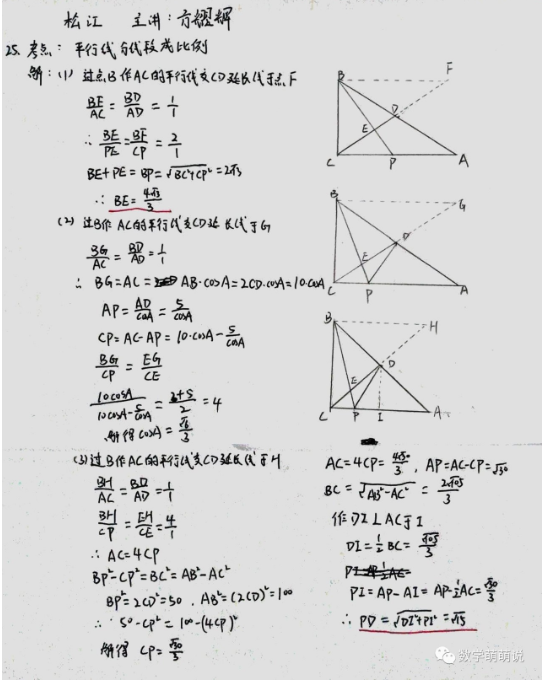 松江 主讲:方耀辉
25. 考点: 平行线分线段成比例
解: (1) 过点B作AC的平行线交CD延长线于点F
BF/AC = BD/AD = 1/1
∴ BE/PE = BF/CP = 2/1
BE+PE = BP = √(BC²+CP²) = 2√3
∴ BE = 4√3/3
(2) 过B作AC的平行线交CD延长线于G
BG/AC = BD/AD = 1/1
∴ BG = AC = AB·cosA = 2CD·cosA = 10·cosA
AP = AD/cosA = 5/cosA
CP = AC-AP = 10·cosA - 5/cosA
BG/CP = EG/CE
10cosA/(10cosA - 5/cosA) = (3+5)/2 = 4
解得 cosA = √6/3
(3) 过B作AC的平行线交CD延长线于H
BH/AC = BD/AD = 1/1
BH/CP = EH/CE = 4/1
∴ AC = 4CP
BP²-CP² = BC² = AB²-AC²
BP² = 2CD² = 50, AB² = (2CD)² = 100
∴ 50-CP² = 100-(4CP)²
解得 CP = √30/3
AC = 4CP = 4√30/3, AP = AC-CP = √30
BC = √(AB²-AC²) = 2√105/3
作DI⊥AC于I
DI = 1/2 BC = √105/3
PI = AP-AI = AP-1/2 AC = √30/3
∴ PD = √(DI²+PI²) = √15
B F D E C P A
B G D E C P A
B H D E C P I A
数学萌萌说